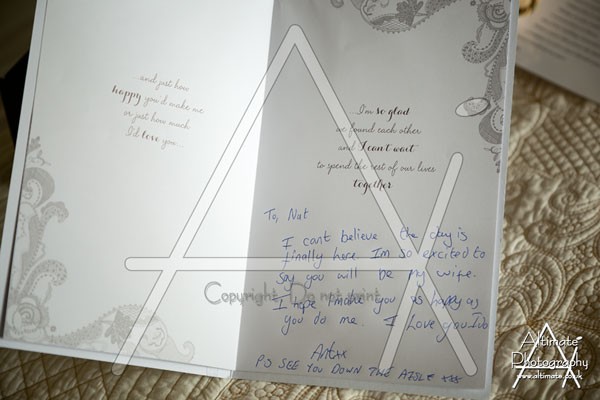 ...and just how
happy you'd make me
or just how much
I'd love you...
I'm so glad
we found each other
and I can't wait
to spend the rest of our lives
together
To, Nat
I cant believe the day is
finally here. Im so excited to
say you will be my wife.
I hope I make you as happy as
you do me. I Love you
Ant xx
PS SEE YOU DOWN THE AISLE xxx
Copyright - Do not print
Altimate
Photography
www.altimate.co.uk